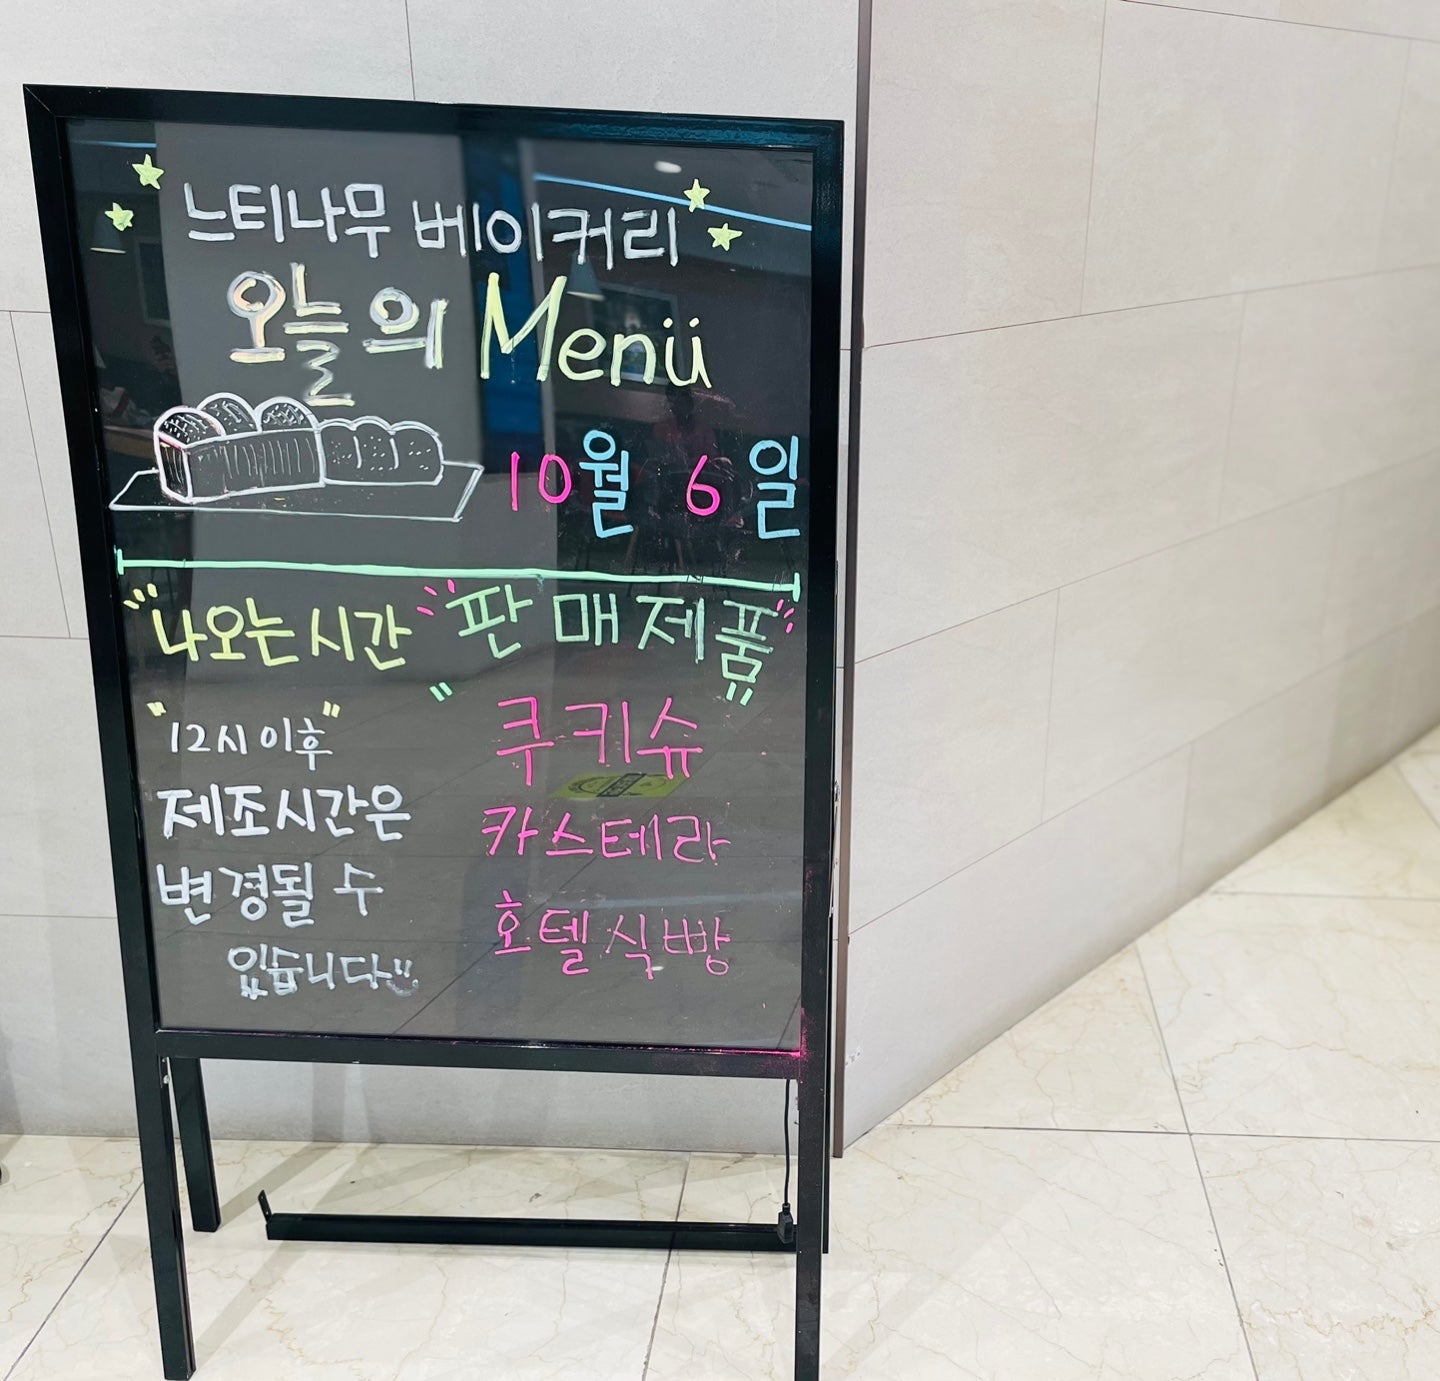 느티나무 베이커리
오늘의 Menü
10월 6일
"나오는시간" "판매제품"
"12시 이후"
제조시간은
변경될 수
있습니다
쿠키슈
카스테라
호텔식빵